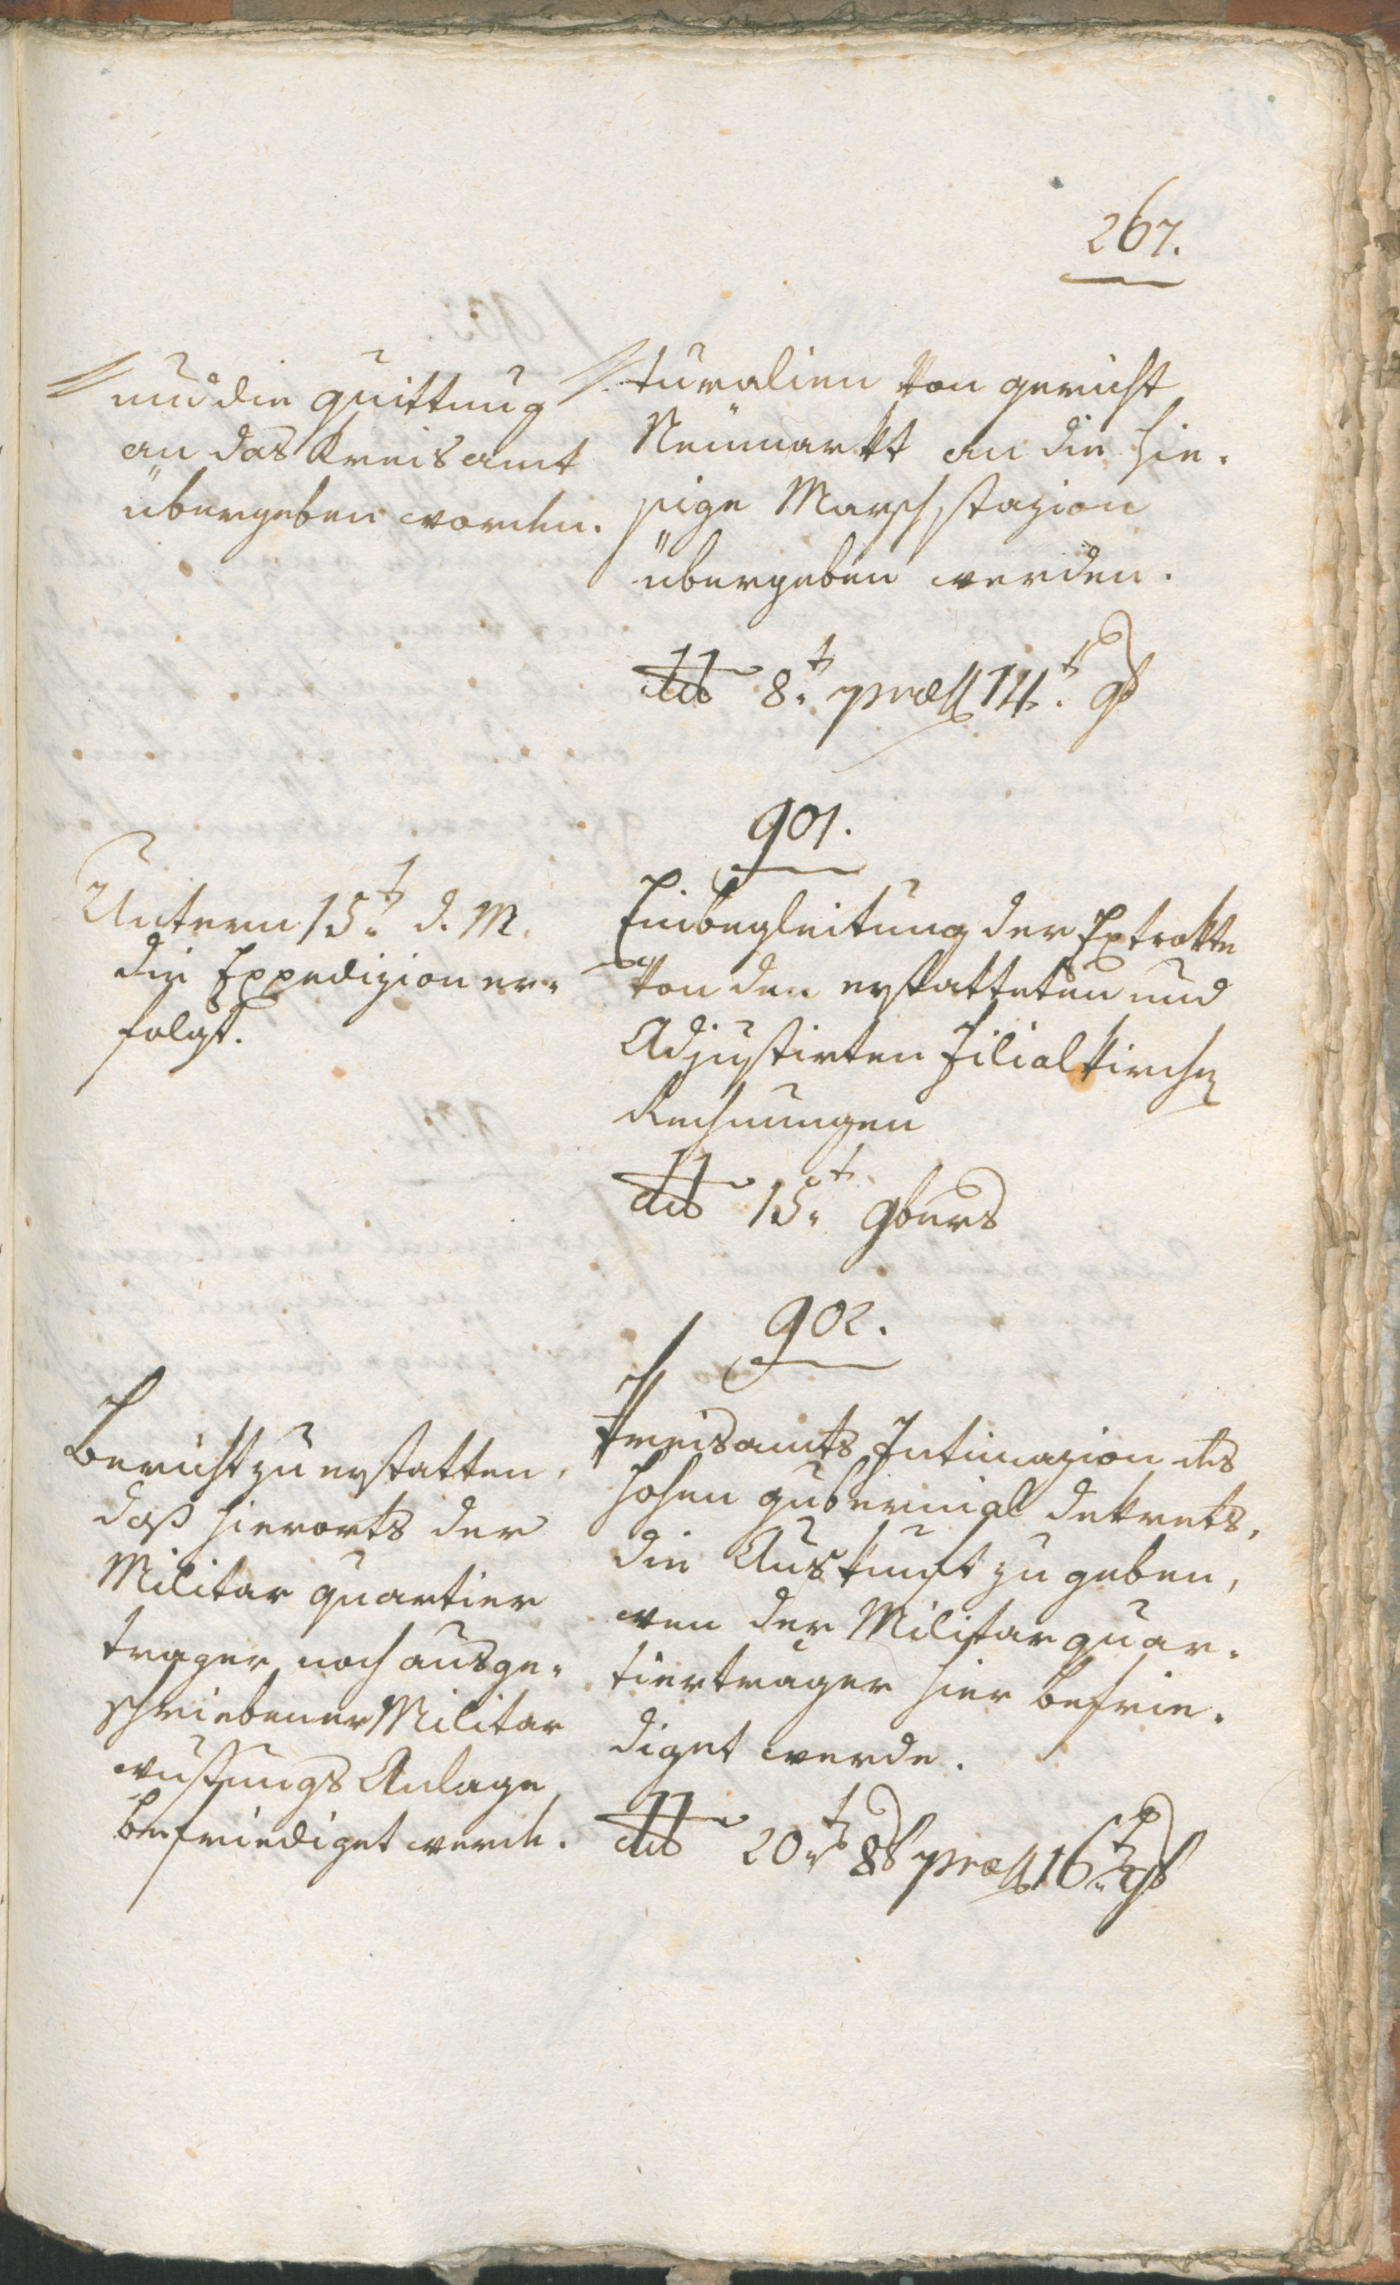 267.
und die Quittung
an das Kreisamt
übergeben worden.
turalien von gericht
Neumarkt an die hie-
sige Marschstazion
übergeben werden.
dto 8t præs 14t 9b
901.
Untern 15t d. M.
die Expedizion er-
folgt.
Einbegleitung der Extrakte
von den erstatteten und
Adjustirten Filialkirchen
Rechnungen
dto 15t 9bris
902.
Bericht zu erstatten,
daß hierorts der
Militar quartier
trager nach ausge-
schriebener Militar
Anlage
befriediget werde.
Kreisamts Intimazion des
hohen gubernial dekrets,
die Auskunft zu geben,
wen der Militar quar-
tiertrager hier befrie-
diget werde.
dto 20t 8b præs 16t 9b